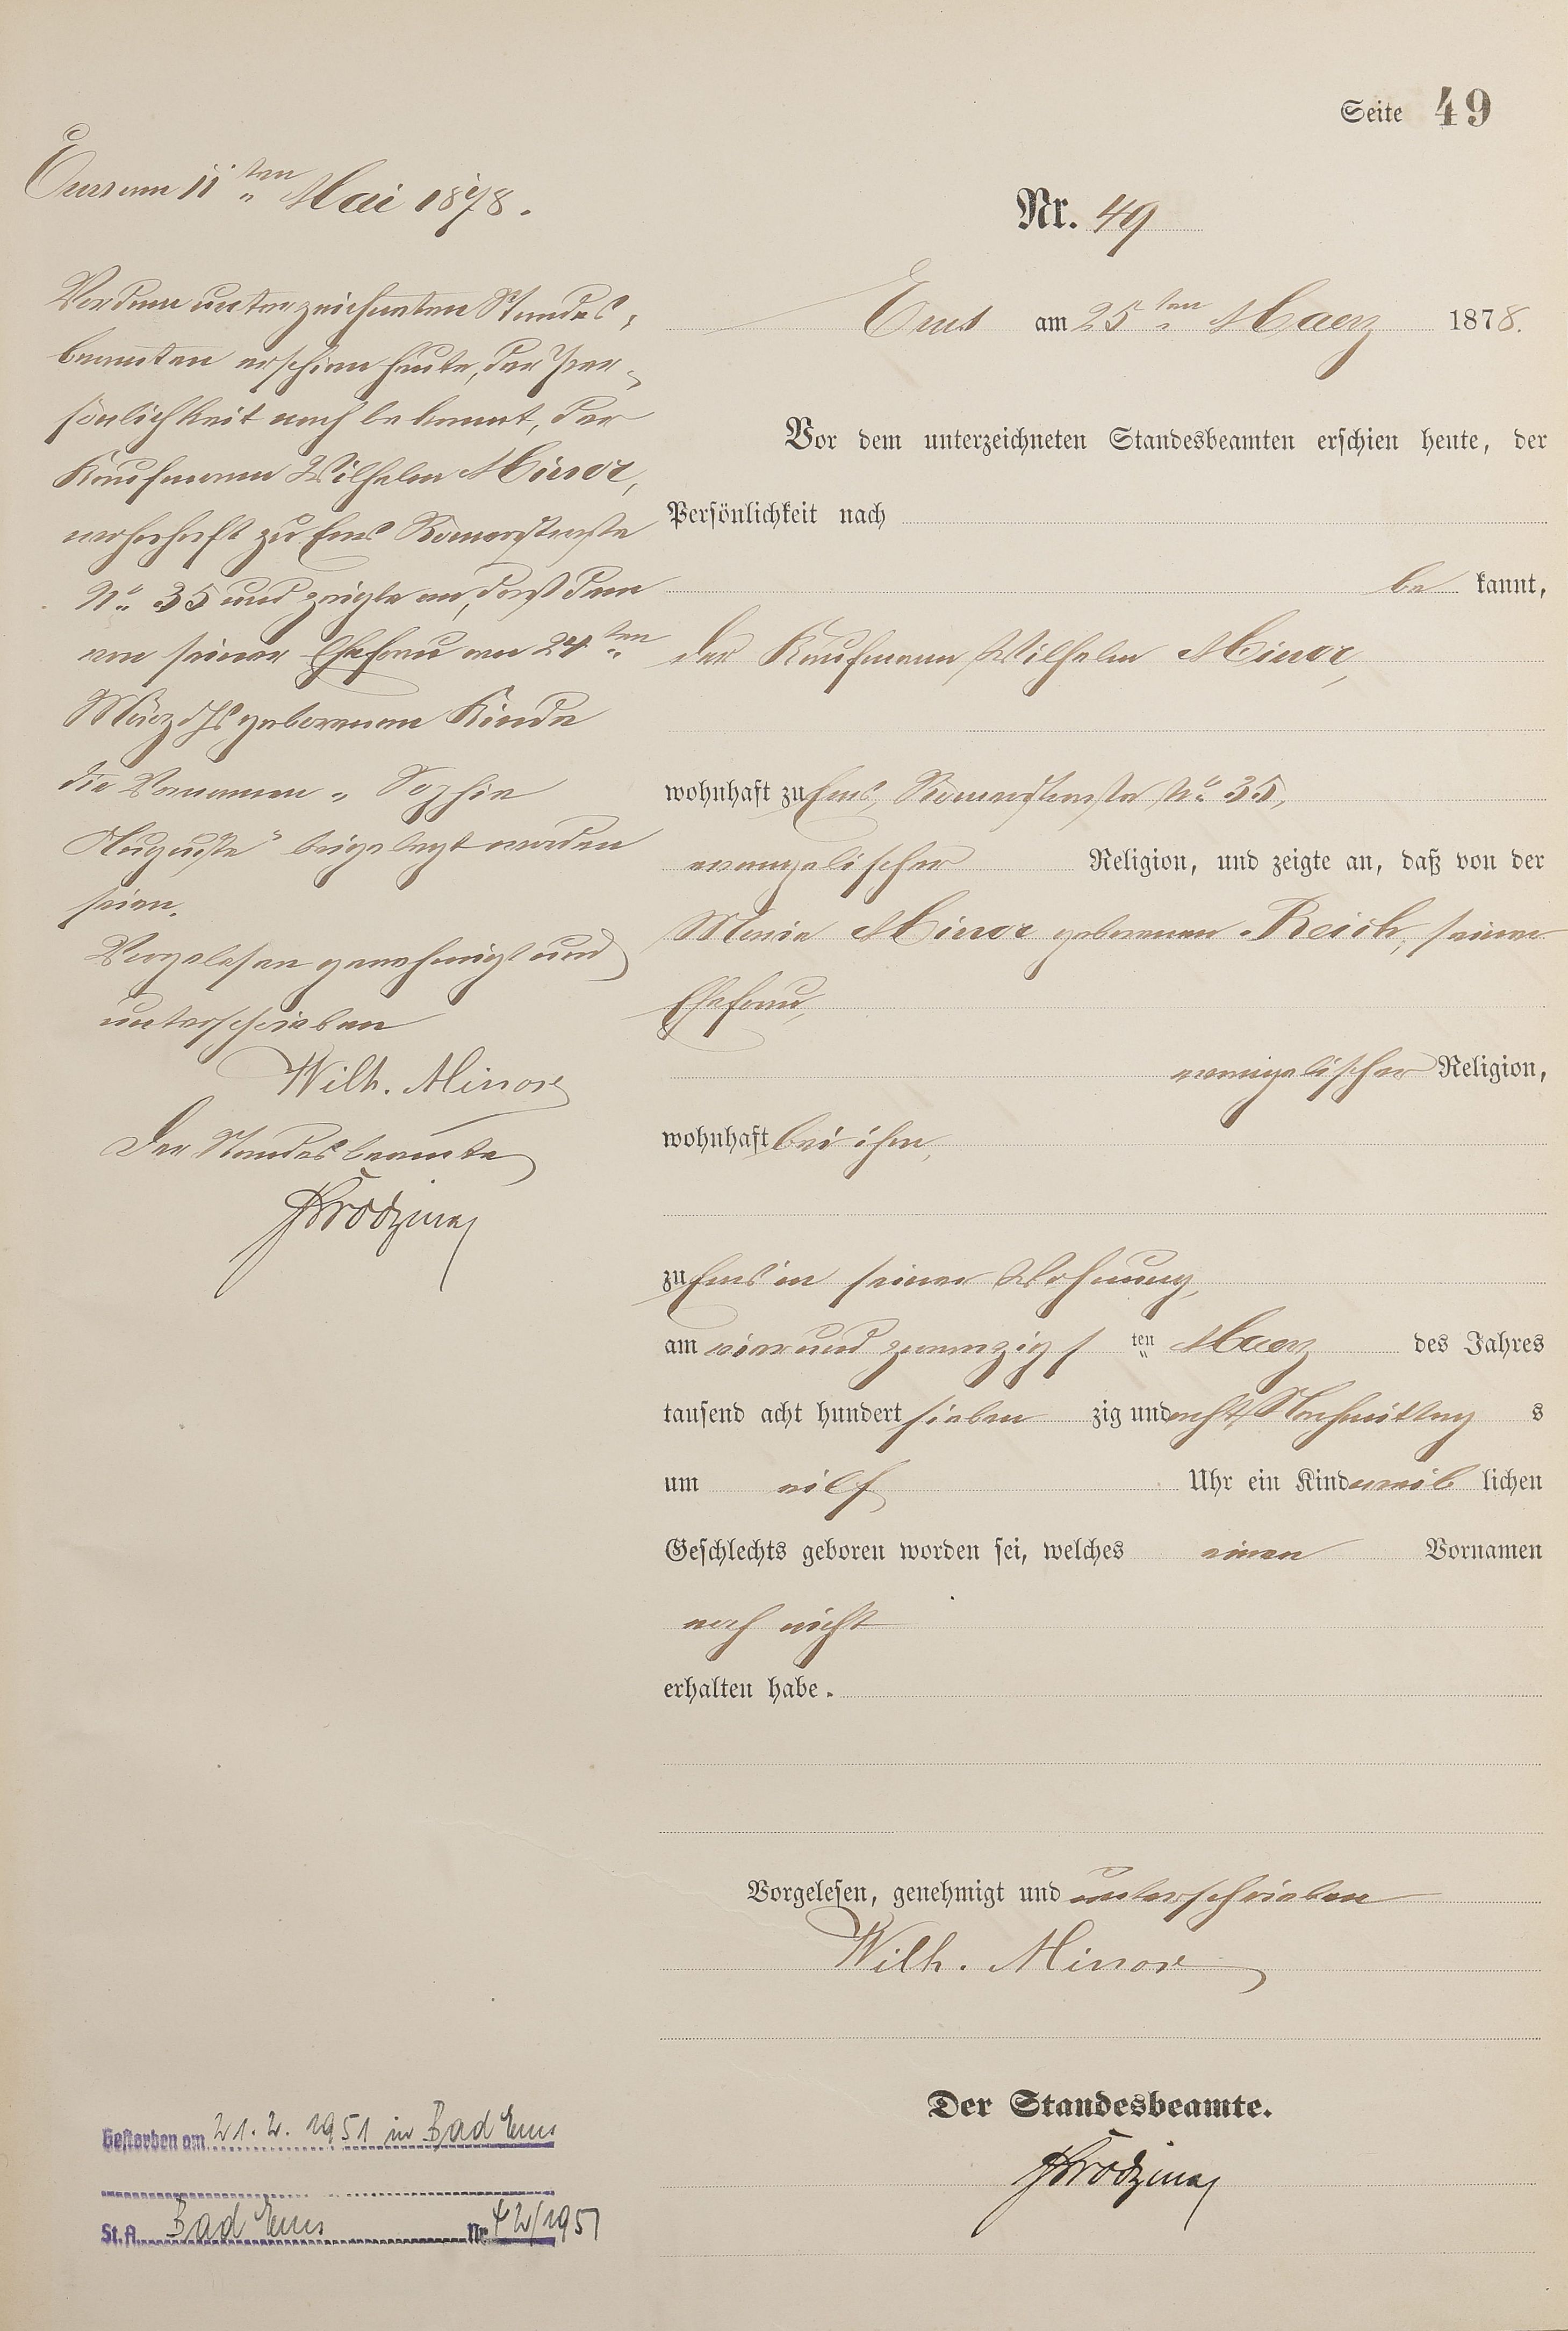 Seite 49
Ems am 11ten Mai 1878.
Vor dem unterzeichneten Standes-
beamten erschien heute, der Per-
sönlichkeit nach bekannt, der
Kaufmann Wilhelm Minor,
wohnhaft zu Ems Römerstraße
No. 35 und zeigte an, daß dem
von seiner Ehefrau am 24ten
März d Js geborenen Kinde
die Vornamen „Sophie
Auguste" beigelegt worden
seien.
Vorgelesen genehmigt und
unterschrieben
Wilh. Minor
Der Standesbeamte
Gestorben am 21.2.1951 in Bad Ems
St.A. Bad Ems Nr. 42/1951
Nr. 49
Ems am 25ten Maerz 1878.
Vor dem unterzeichneten Standesbeamten erschien heute, der
Persönlichkeit nach
be kannt,
der Kaufmann Wilhelm Minor,
wohnhaft zu Ems, Römerstraße No. 35,
evangelischer Religion, und zeigte an, daß von der
Marie Minor geborenen Reich, seiner
Ehefrau,
evangelischer Religion,
wohnhaft bei ihm,
zu Ems in seiner Wohnung,
am vier und zwanzigs ten Maerz des Jahres
tausend acht hundert sieben zig und acht, Nachmittag s
um eilf Uhr ein Kind weib lichen
Geschlechts geboren worden sei, welches einen Vornamen
noch nicht
erhalten habe.
Vorgelesen, genehmigt und unterschrieben
Wilh. Minor
Der Standesbeamte.